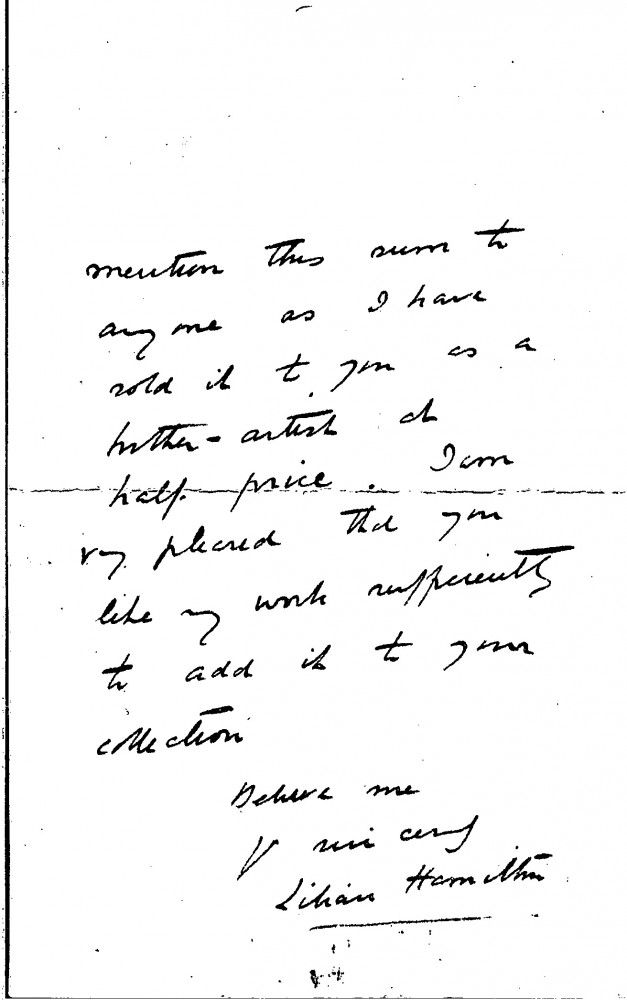 mention this sum to
any one as I have
sold it to you as a
brother-artist at
half price. I am
vy pleased that you
like my work sufficiently
to add it to your
collection
Believe me
Y sincerely
Lilian Hamilton